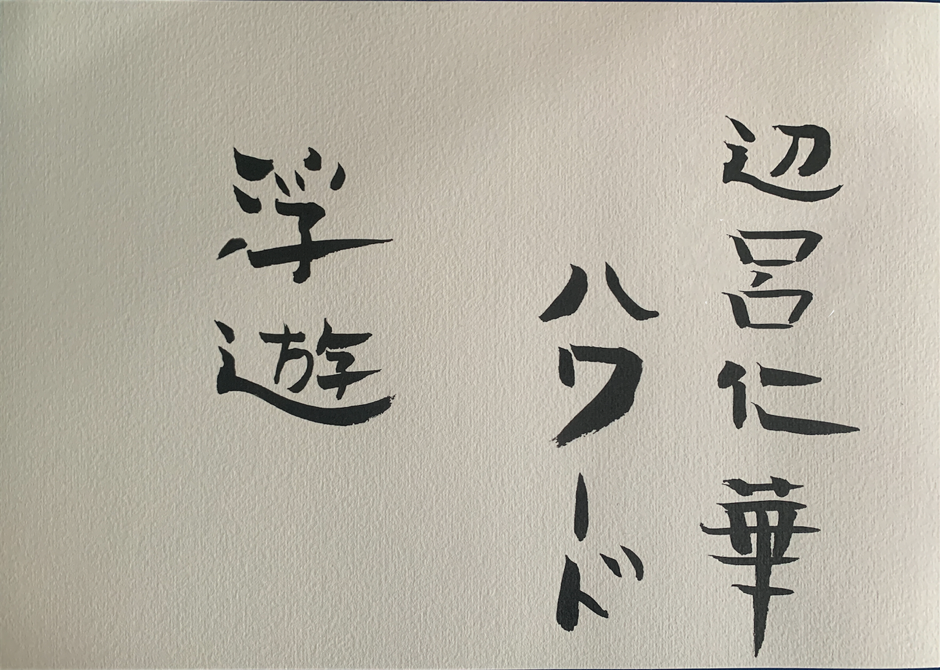 辺呂仁華
ハワード
浮遊